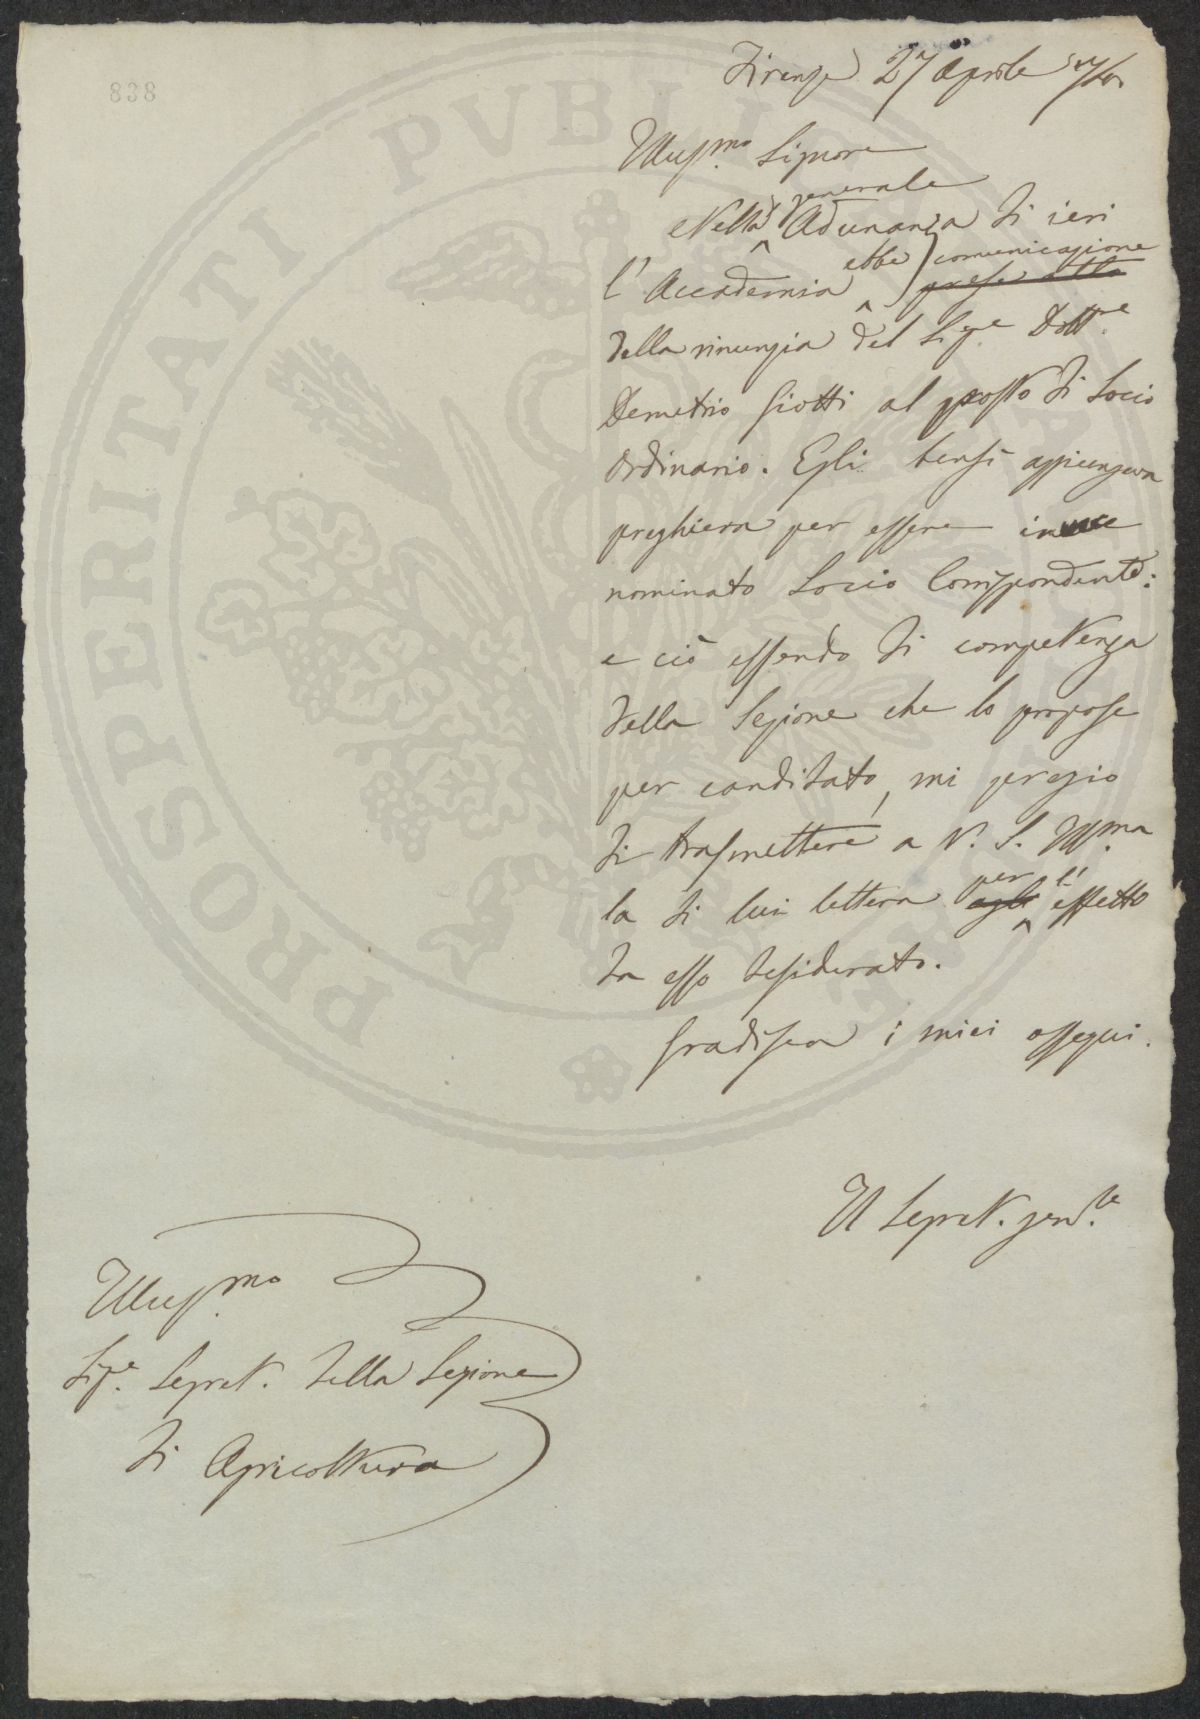 838
PROSPERITATI PVBLI
Firenze 27 Aprile
Illus.mo Signore
Nella generale Adunanza di ieri
l'Accademia ebbe comunicazione
della rinunzia del Sig.e Dott.e
Demetrio Giotti al posto di Socio
Ordinario. Egli bensì aggiungeva
preghiera per essere invece
nominato Socio Corrispondente:
e ciò essendo di competenza
della Sezione che lo propose
per candidato, mi pregio
di trasmettere a V. S. Ill.ma
la di lui lettera per l'effetto
da esso desiderato.
Gradisca i miei ossequi.
Il Segret. gen.le
Illus.mo
Sig.e Segret. della Sezione
di Agricoltura